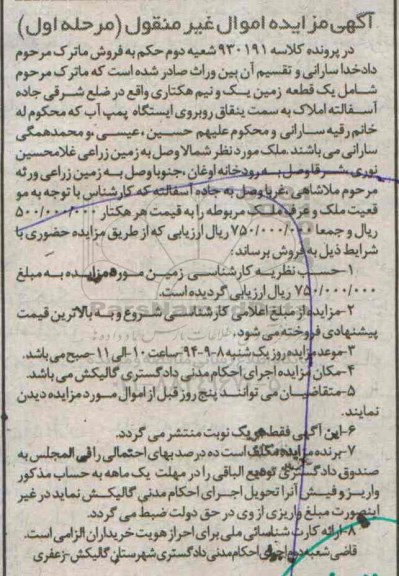 آگهی مزایده اموال غیر منقول (مرحله اول)
در پرونده کلاسه ۹۳۰۱۹۱ شعبه دوم حکم به فروش ماترک مرحوم
دادخدا سارانی و تقسیم آن بین وراث صادر شده است که ماترک مرحوم
شامل یک قطعه زمین یک و نیم هکتاری واقع در ضلع شرقی جاده
آسفالته املاک به سمت ینقاق روبروی ایستگاه پمپ آب که محکوم له
خانم رقیه سارانی و محکوم علیهم حسین ،عیسی ،و محمدهمگی
سارانی می باشند .ملک مورد نظر شمالا وصل به زمین زراعی غلامحسین
نوری ،شرقا وصل به رودخانه اوغان ،جنوبا وصل به زمین زراعی ورثه
مرحوم ملاشاهی ،غربا وصل به جاده آسفالته که کارشناس با توجه به مو
قعیت ملک و عرف ملک مربوطه را به قیمت هر هکتار ۵۰۰/۰۰۰/۰۰۰
ریال و جمعا ۷۵۰/۰۰۰/۰۰۰ ریال ارزیابی که از طریق مزایده حضوری با
شرایط ذیل به فروش برساند:
۱-حسب نظریه کارشناسی زمین مورد مزایده به مبلغ
۷۵۰/۰۰۰/۰۰۰ ریال ارزیابی گردیده است.
۲-مزایده از مبلغ اعلامی کارشناسی شروع و به بالاترین قیمت
پیشنهادی فروخته می شود.
۳-موعد مزایده روز یک شنبه ۸-۹-۹۴ ساعت ۱۰ الی ۱۱ صبح می باشد.
۴-مکان مزایده اجرای احکام مدنی دادگستری گالیکش می باشد.
۵-متقاضیان می توانند پنج روز قبل از اموال مورد مزایده دیدن
نمایند.
۶-این آگهی فقط در یک نوبت منتشر می گردد.
۷-برنده مزایده مکلف است ده درصد بهای احتمالی را فی المجلس به
صندوق دادگستری تودیع الباقی را در مهلت یک ماهه به حساب مذکور
واریز و فیش آنرا تحویل اجرای احکام مدنی گالیکش نماید در غیر
اینصورت مبلغ واریزی از وی در حق دولت ضبط می گردد.
۸-ارائه کارت شناسائی ملی برای احراز هویت خریداران الزامی است.
قاضی شعبه دوم اجرای احکام مدنی دادگستری شهرستان گالیکش-زعفری